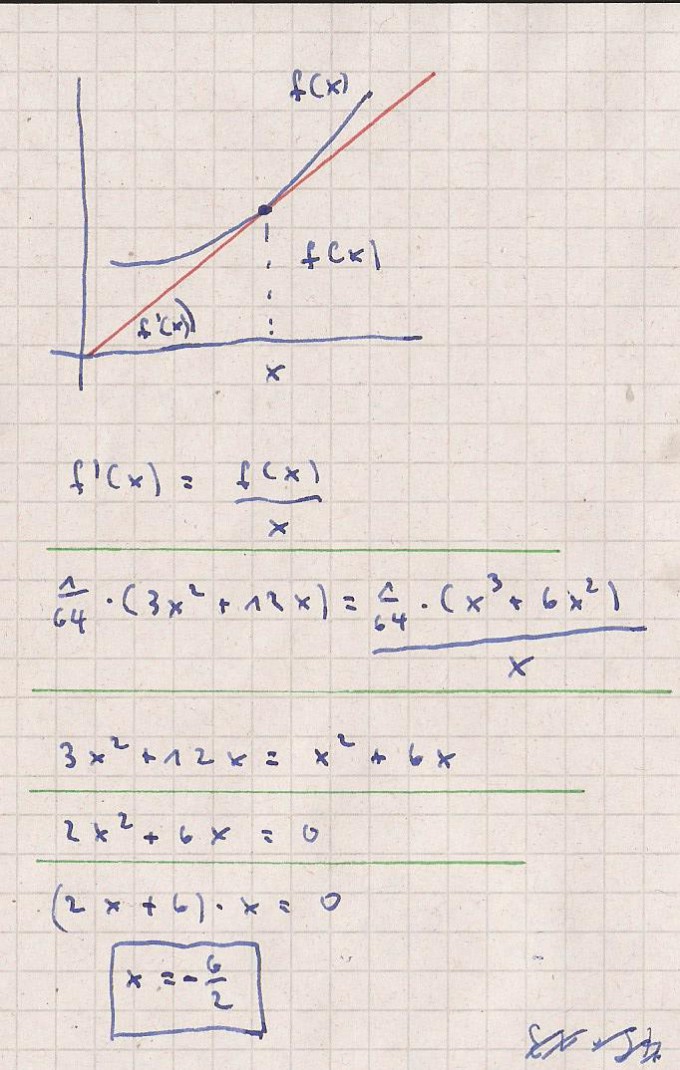 f(x)
f(x)
f'(x)
x
f'(x) = f(x)/x
1/64 · (3x² + 12x) = 1/64 · (x³ + 6x²)/x
3x² + 12x = x² + 6x
2x² + 6x = 0
(2x + 6) · x = 0
x = -6/2